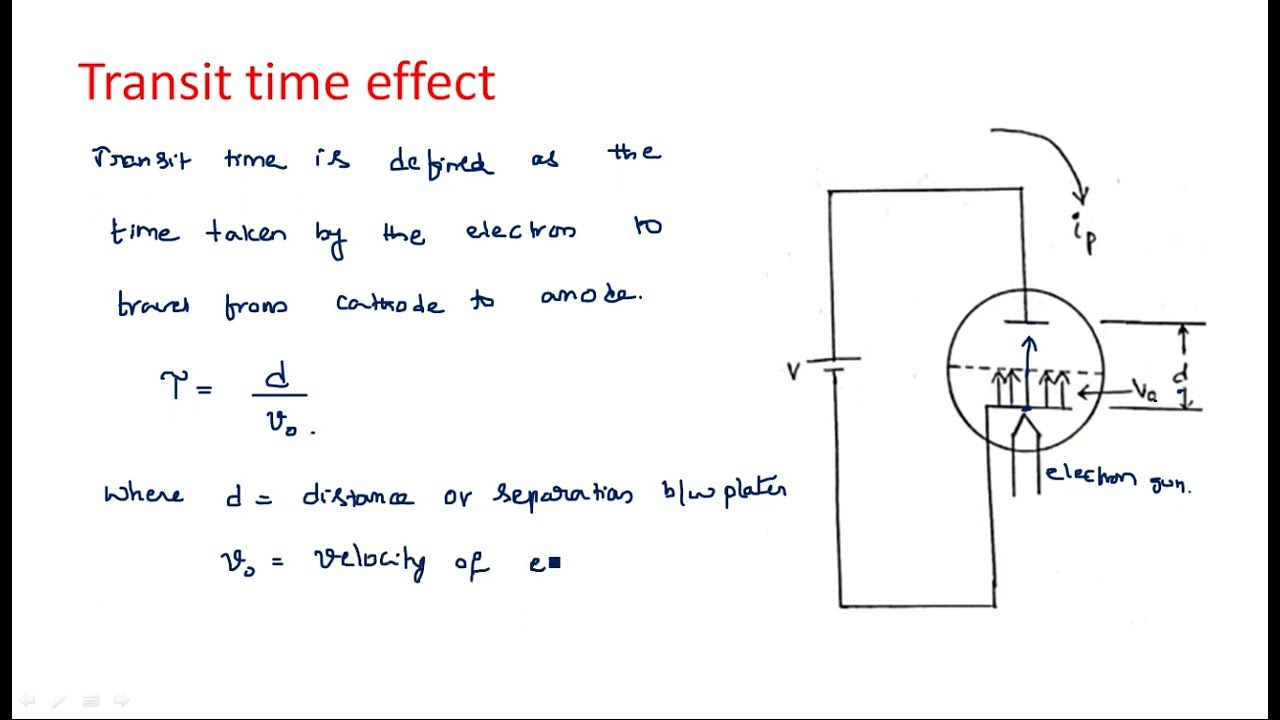 Transit time effect
Transit time is defined as the
time taken by the electron to
travel from cathode to anode.
τ = d / v₀.
where d = distance or separation b/w plates
v₀ = velocity of e
iₚ
V
d
V₀
electron gun.